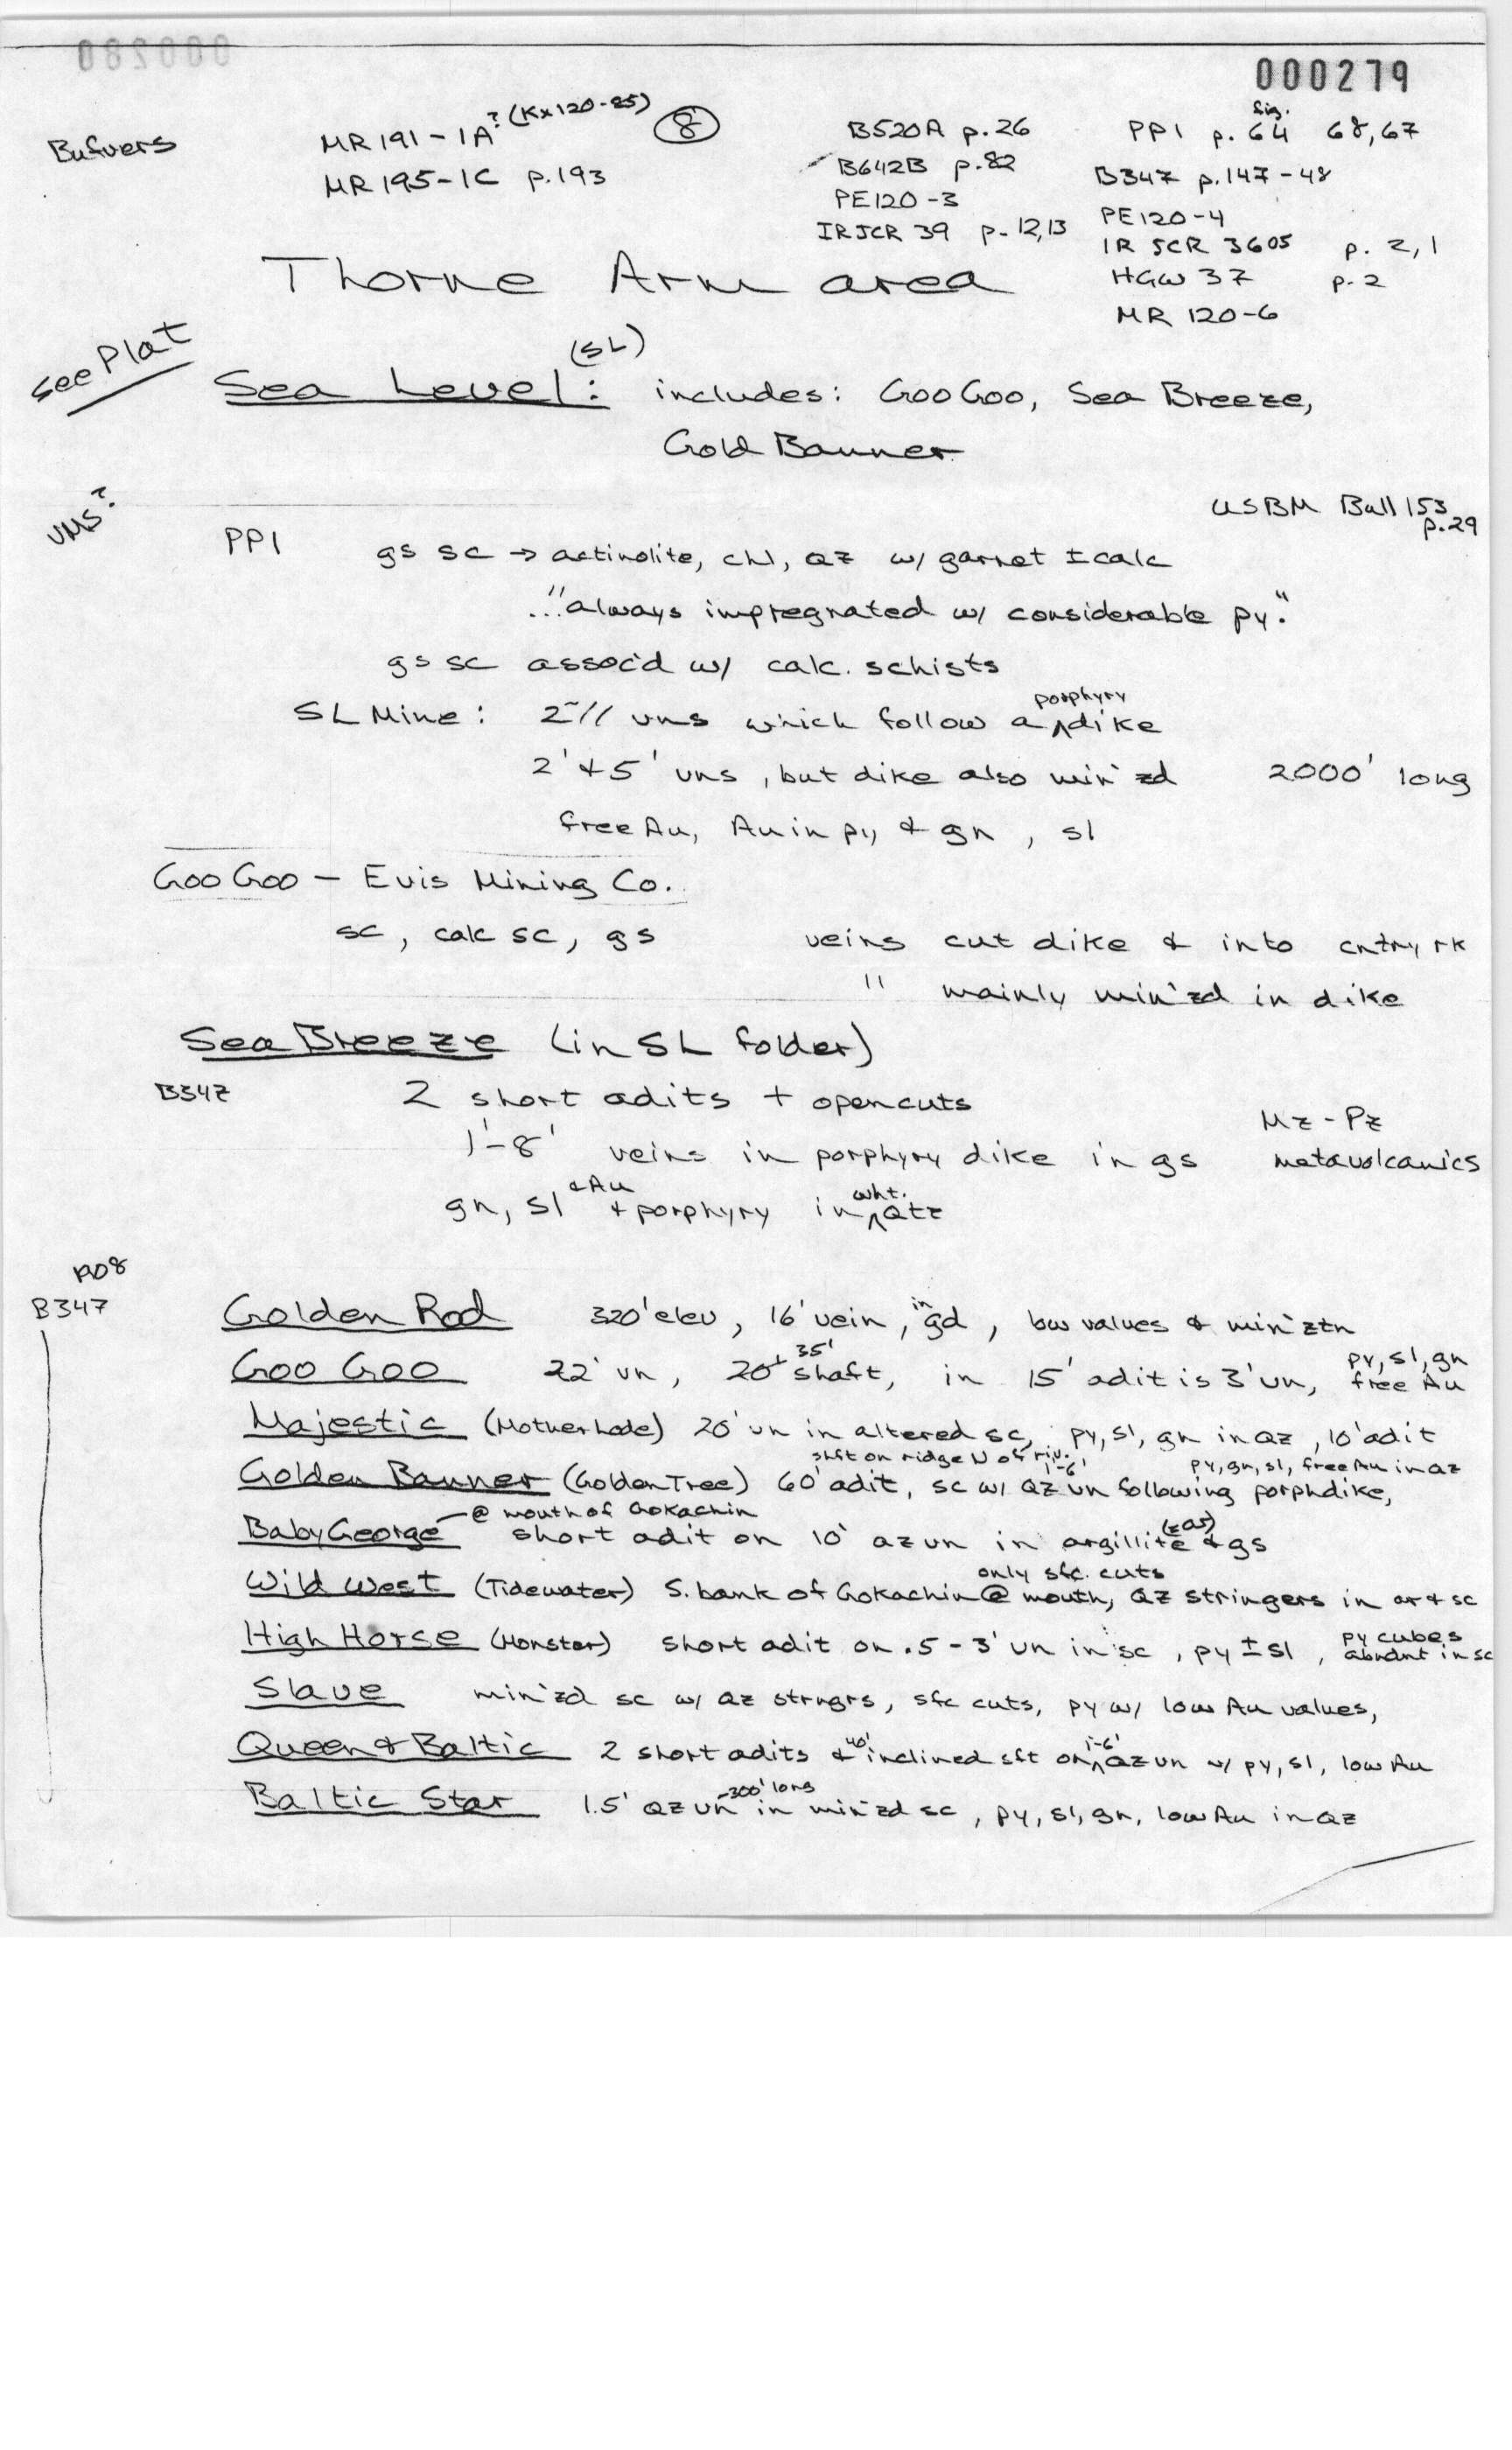 000279
Bufvers
MR 191-1A? (Kx120-85)
MR 195-1C p.193
8
B520A p.26
B642B p.82
PE120-3
IRJCR 39 p-12,13
fig.
PP1 p.64 68,67
B347 p.147-48
PE120-4
IR SCR 3605 p. 2,1
HGW 37 p.2
MR 120-6
Thorne Arm area
see Plat
(SL)
Sea Level: includes: Goo Goo, Sea Breeze,
Gold Banner
VMS?
USBM Bull 153
p.29
PP1 gs sc → actinolite, chl, QZ w/ garnet ± calc
..."always impregnated w/ considerable py."
gs sc assoc'd w/ calc. schists
porphyry
SL Mine: 2~// vns which follow a ^ dike
2' & 5' vns, but dike also min'zd 2000' long
free Au, Au in py & gn, sl
Goo Goo — Evis Mining Co.
sc, calc sc, gs veins cut dike & into cntry rk
" mainly min'zd in dike
Sea Breeze (in SL folder)
B347 2 short adits + opencuts
1'-8' veins in porphyry dike in gs
Mz-Pz
metavolcanics
&Au wht.
gn, sl + porphyry in ^ Qtz
1908
B347
Golden Rod 320' elev, 16' vein, in gd, low values & min'ztn
Goo Goo 22' vn, 20± 35' shaft, in 15' adit is 3' vn, py, sl, gn
free Au
Majestic (Motherlode) 20' vn in altered sc, py, sl, gn in QZ, 10' adit
shft on ridge N of riv. 1-6' py, gn, sl, free Au in QZ
Golden Banner (Golden Tree) 60' adit, sc w/ QZ vn following porph dike,
@ mouth of Gokachin
Baby George — short adit on 10' QZ vn in argillite (=ar) & gs
only sfc. cuts
Wild West (Tidewater) S. bank of Gokachin @ mouth, QZ stringers in ar & sc
High Horse (Monster) short adit on .5-3' vn in sc, py ± sl, py cubes
abndnt in sc
Slave min'zd sc w/ QZ strngrs, sfc cuts, py w/ low Au values,
40' 1-6'
Queen & Baltic 2 short adits & inclined sft on ^ QZ vn w/ py, sl, low Au
~300' long
Baltic Star 1.5' QZ vn in min'zd sc, py, sl, gn, low Au in QZ